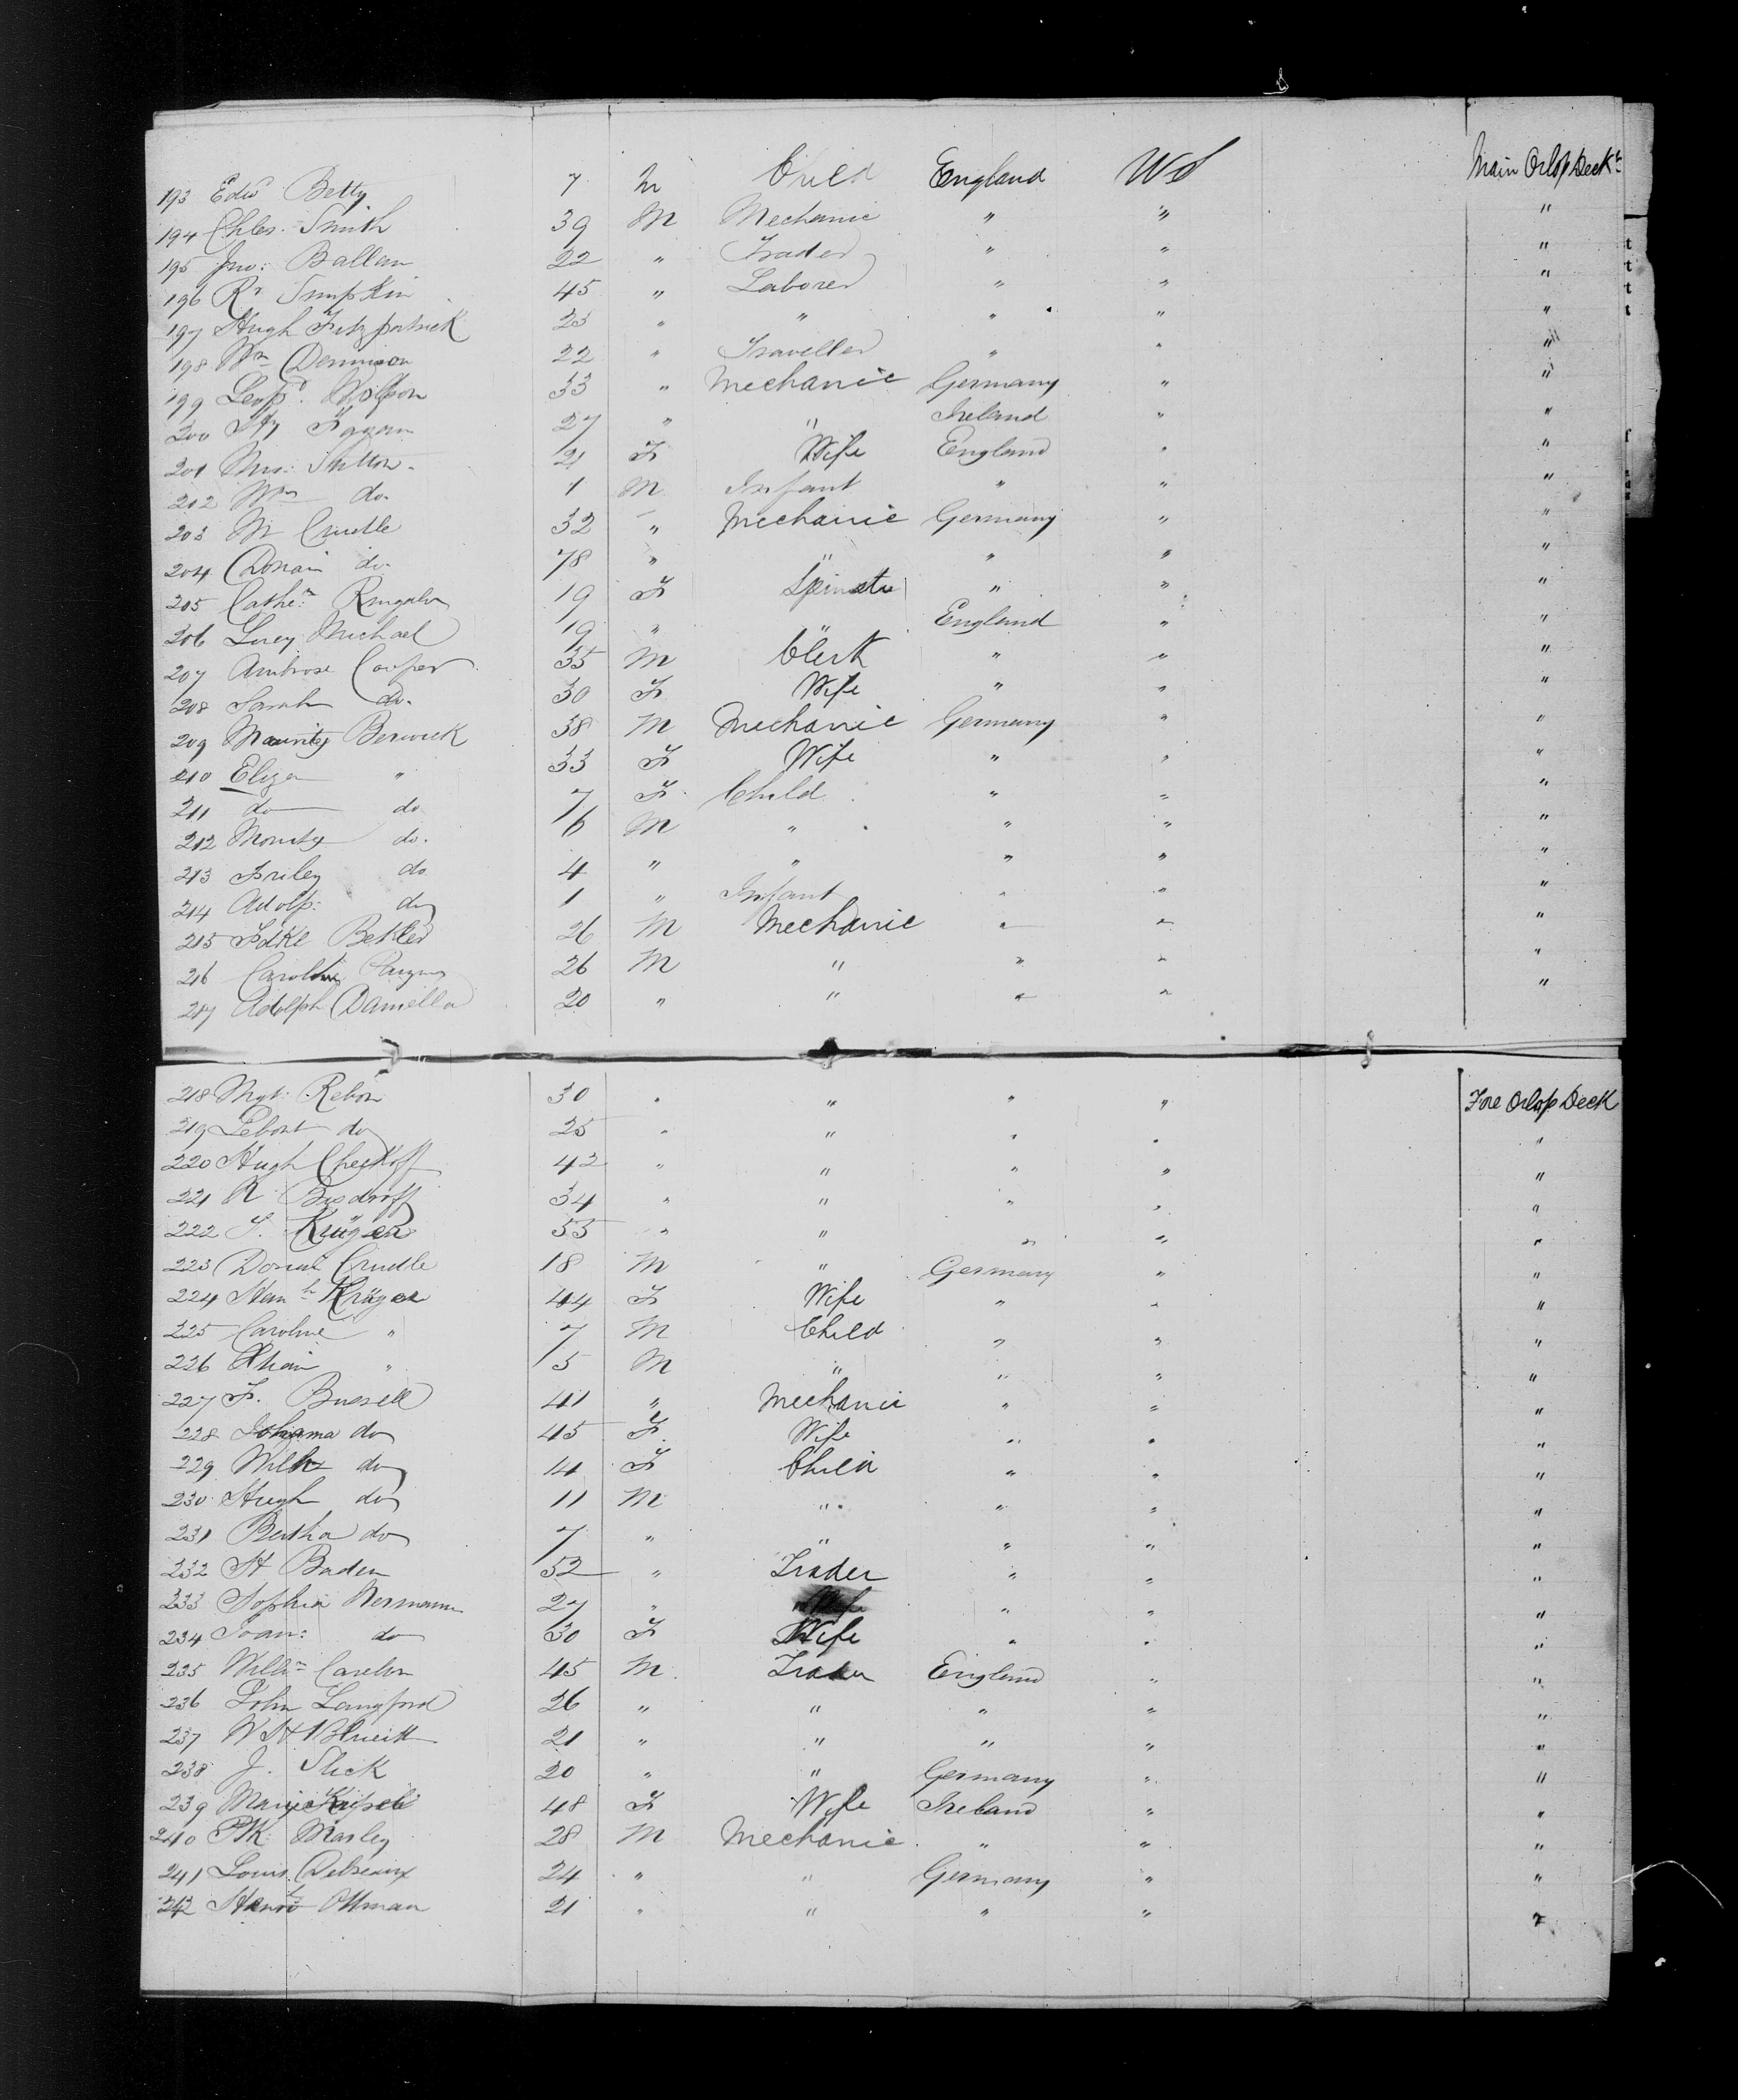 193 Edw Betty 7 M Child England US Main Orlop Deck
194 Chles. Smith 39 M Mechanic " " "
195 Jno: Ballan 22 " Trader " " "
196 Rr Simpkin 45 " Laborer " " "
197 Hugh Fitzpatrick 23 " " " " "
198 Wm Dennison 22 " Traveller " " "
199 Leopd. Wolfson 33 " Mechanic Germany " "
200 Hy 27 " " Ireland " "
201 Mrs: Sutton 21 F Wife England " "
202 Wm do. 1 M Infant " " "
203 M 32 " Mechanic Germany " "
204 do. 78 " " " " "
205 Cathe: 19 F Spinster " " "
206 Lucy Michael 19 " " England " "
207 Ambrose Cooper 35 M Clerk " " "
208 Sarah do. 30 F Wife " " "
209 Mauritz Berwick 38 M Mechanic Germany " "
210 Eliza " 33 F Wife " " "
211 do do 7 F Child " " "
212 Moritz do. 6 M " " " "
213 do 4 " " " " "
214 Adolp: do 1 " Infant " " "
215 Bekler 26 M Mechanic " " "
216 Caroline 26 M " " " "
217 Adolph Daniella 20 " " " " "
218 Mgt: Rebon 30 " " " " Fore Orlop Deck
219 Lebort do 25 " " " " "
220 Hugh Checkoff 42 " " " " "
221 R Bisdroff 34 " " " " "
222 F. Krüger 55 " " " " "
223 18 M " Germany " "
224 Han h Krüger 44 F Wife " " "
225 Caroline " 7 M Child " " "
226 " 5 M " " " "
227 F. Buesell 41 " Mechanic " " "
228 Johanna do 45 F. Wife " " "
229 do 14 F Child " " "
230 Hugh do 11 M " " " "
231 Bertha do 7 " " " " "
232 H Baden 52 " Trader " " "
233 Sophia Hermann 27 " " " "
234 Joan: do 30 F Wife " " "
235 Willm 45 M Trader England " "
236 John Langford 26 " " " " "
237 W H 21 " " " " "
238 J. Slick 20 " " Germany " "
239 48 F Wife Ireland " "
240 Pk: Marley 28 M Mechanic " " "
241 Louis 24 " " Germany " "
242 Ottman 21 " " " " "